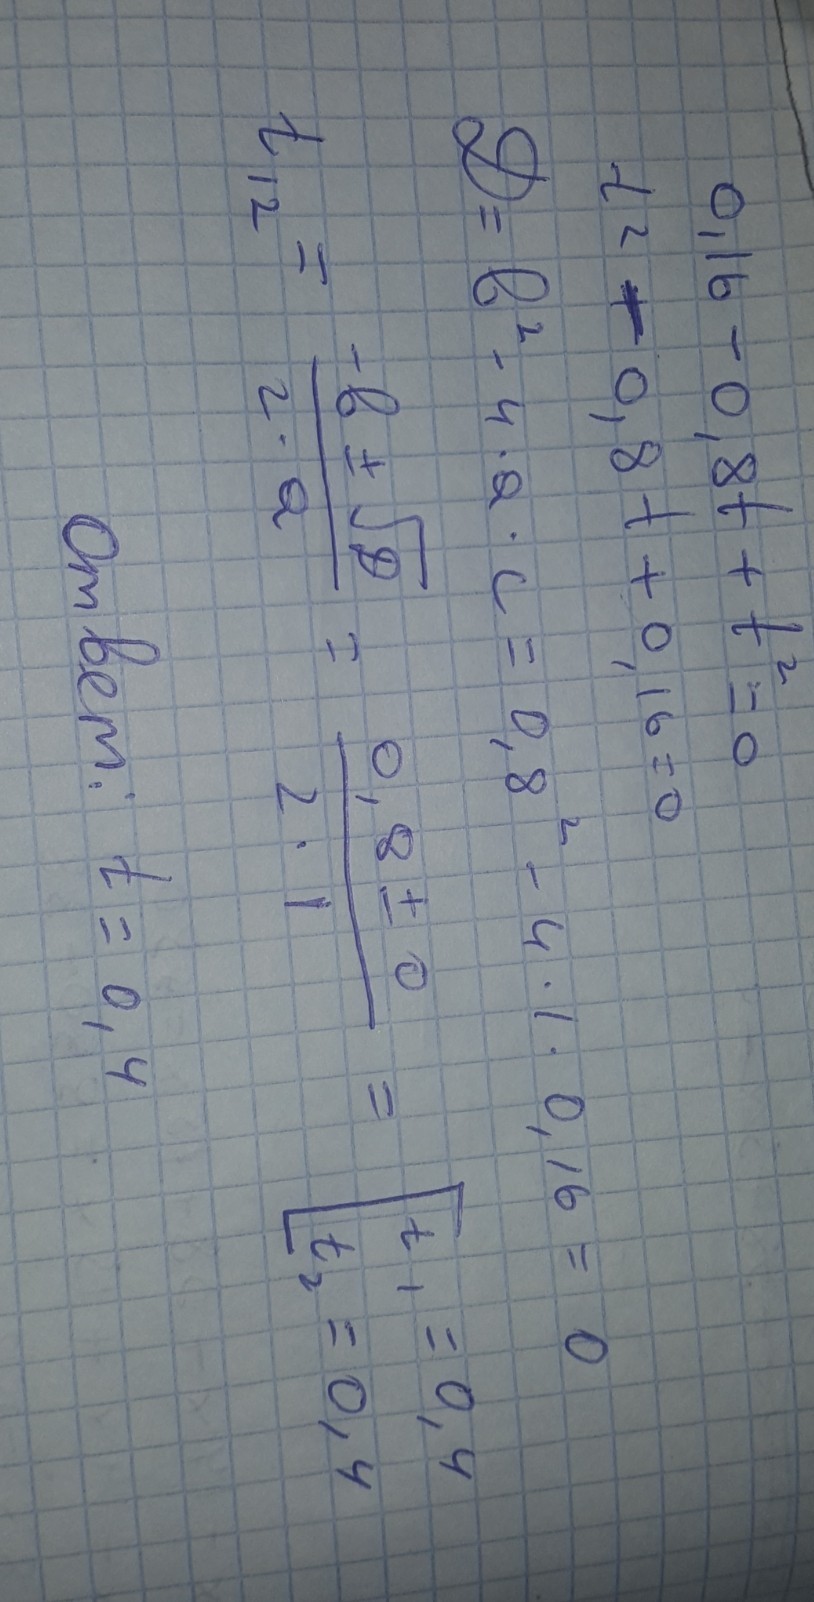 0,16 - 0,8t + t² = 0
t² - 0,8t + 0,16 = 0
D = b² - 4·a·c = 0,8² - 4·1·0,16 = 0
t₁₂ = (-b ± √D)/(2·a) = (0,8 ± 0)/(2·1) = [t₁ = 0,4
t₂ = 0,4
Ответ: t = 0,4